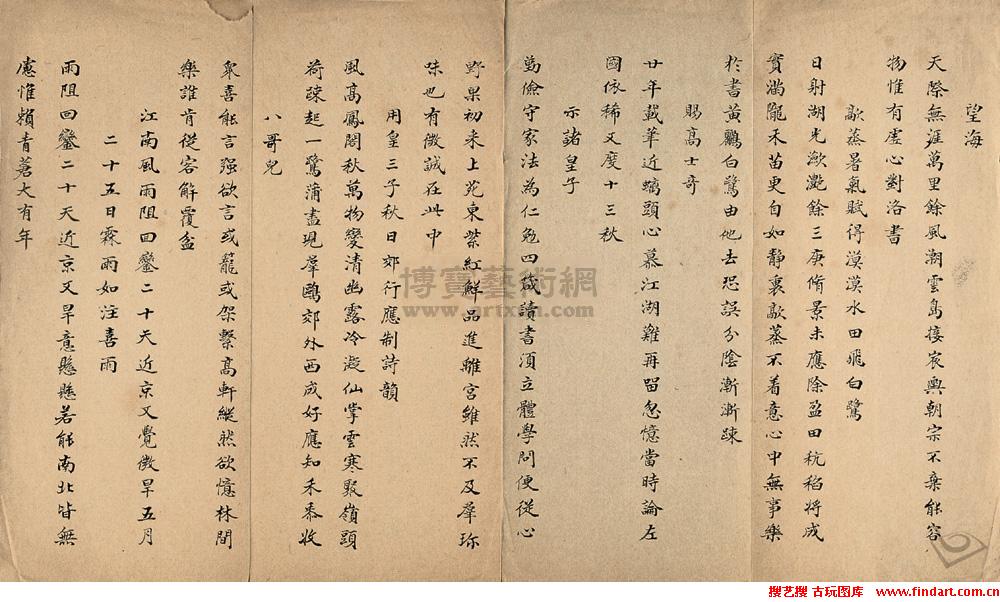 望海
天際無涯萬里餘風潮雲島接宸輿朝宗不棄能容
物惟有虛心對洛書
歊蒸暑氣賦得漠漠水田飛白鷺
日射湖光瀲灩餘三庚脩景未應除盈田秔稻將成
實滿隴禾苗更自如靜裏歊蒸不着意心中無事樂
於書黃鸝白鷺由他去恐誤分陰漸漸疎
賜高士奇
廿年載筆近螭頭心慕江湖難再留忽憶當時論左
國依稀又度十三秋
示諸皇子
儉守家法為仁勉四箴讀書須立體學問便從心
野果初來上苑東紫紅鮮品進離宮雖然不及羣珍
味也有微誠在此中
用皇三子秋日郊行應制詩韻
風高鳳閣秋萬物變清幽露冷凝仙掌雲寒聚嶺頭
荷疎起一鷺蒲盡現羣鷗郊外西成好應知禾黍收
八哥兒
衆喜能言强欲言或籠或架繫高軒縱然欲憶林間
樂誰肯從容解覆盆
江南風雨阻回鑾二十天近京又覺微旱五月
二十五日霖雨如注喜雨
雨阻回鑾二十天近京又旱意懸懸若能南北皆無
慮惟賴青蒼大有年
博寶藝術網
www.artxun.com
搜艺搜 古玩图库 www.findart.com.cn